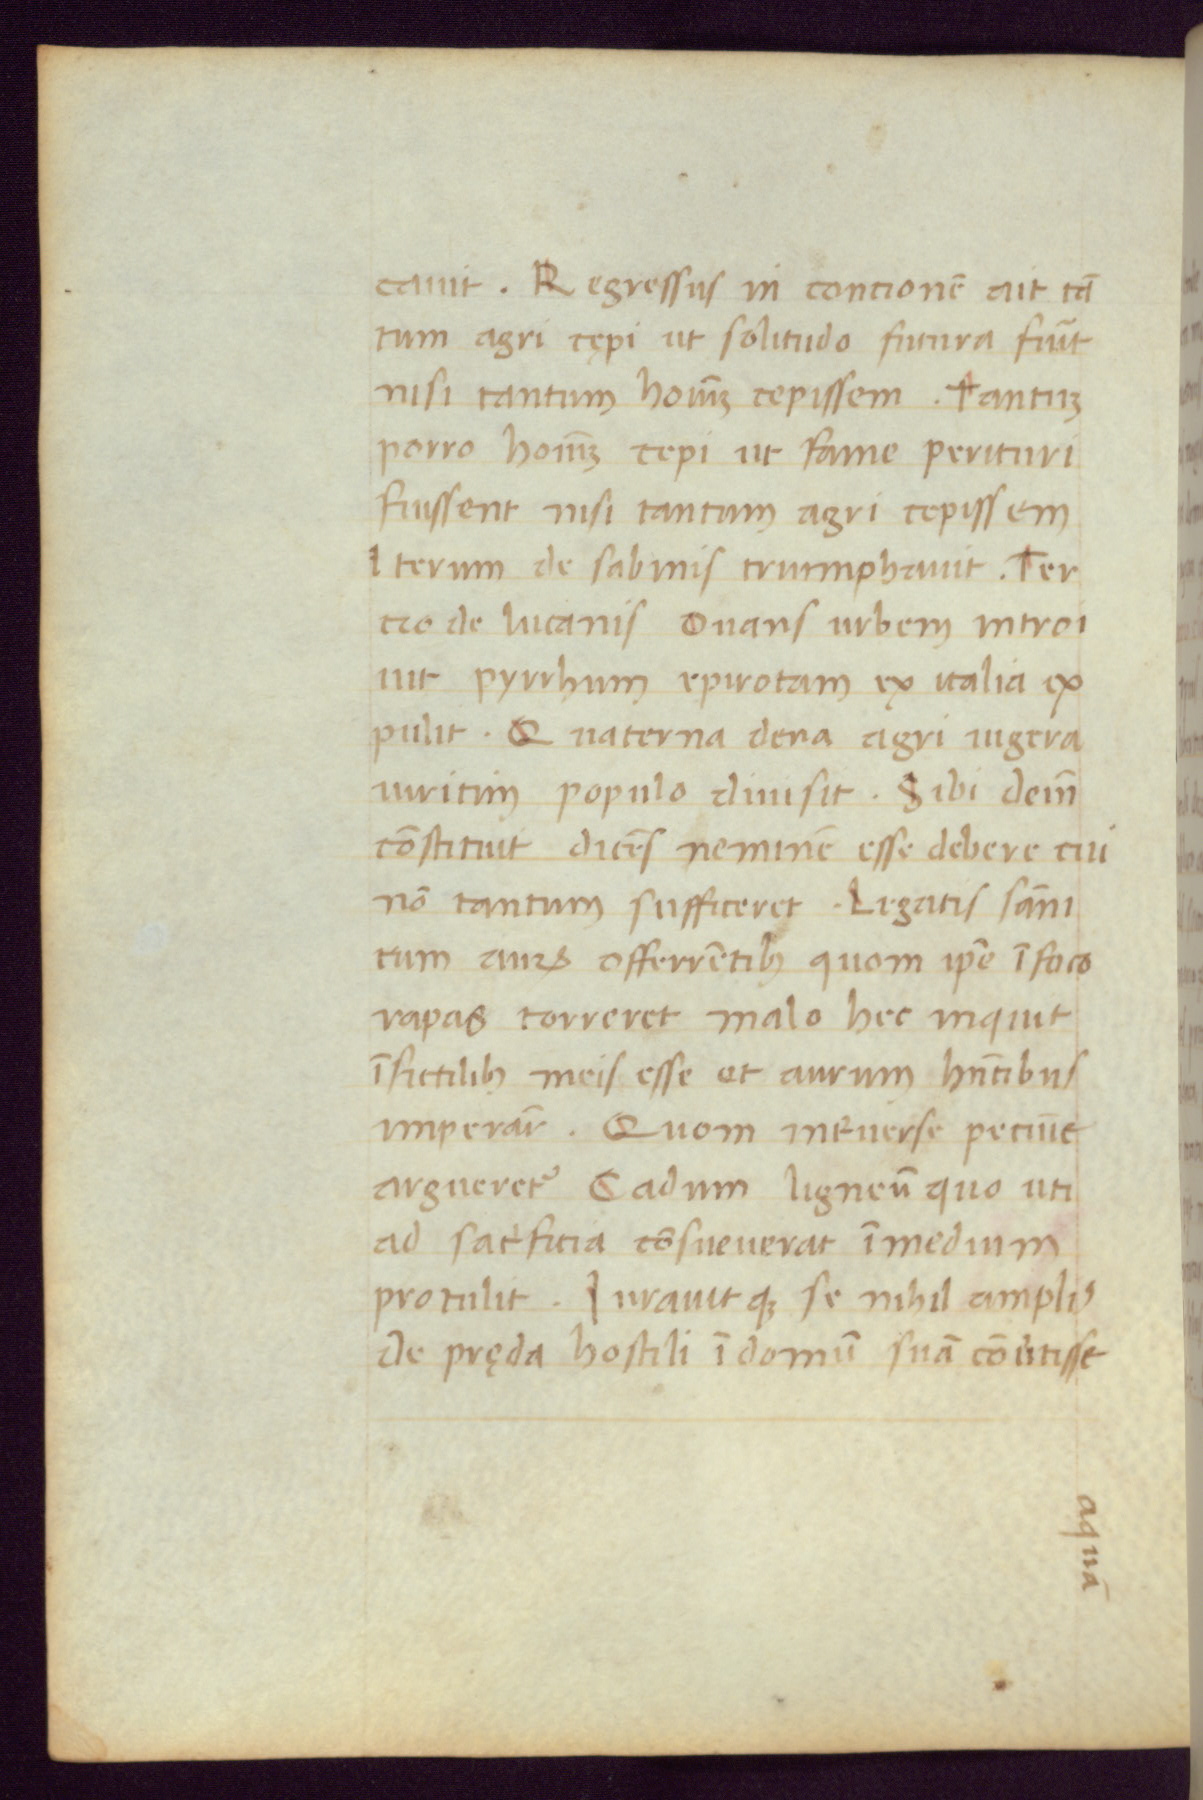 cauit . Regressus in concionē ait tā
tum agri cępi ut solitudo futura fuīt
nisi tantum hoīuʒ cepissem . Tantuʒ
porro hoīuʒ cepi ut fame perituri
fuissent nisi tantum agri cepissem
Iterum de sabinis triumphauit . Ter
cio de lucanis ouans urbem introi
uit pyrrhum epirotam ex italia ex
pulit . Quaterna dena agri iugera
uiritim populo diuisit . Sibi deīn
cōstituit dicēs neminē esse debere cui
nō tantum sufficeret . Legatis sāni
tum auꝝ offerrētibꝫ quom ip̄e ī foco
rapas torreret malo hec inquit
ī fictilibꝫ meis esse et aurum hn̄tibus
imperar̄ . Quom int̄uerse pecuīe
arguereť Cadum ligneū quo uti
ad sacr̄ficia cōsueuerat ī medium
protulit . Iurauitqꝫ se nihil ampliꝰ
de pręda hostili ī domū suā cōūtisse
aquā